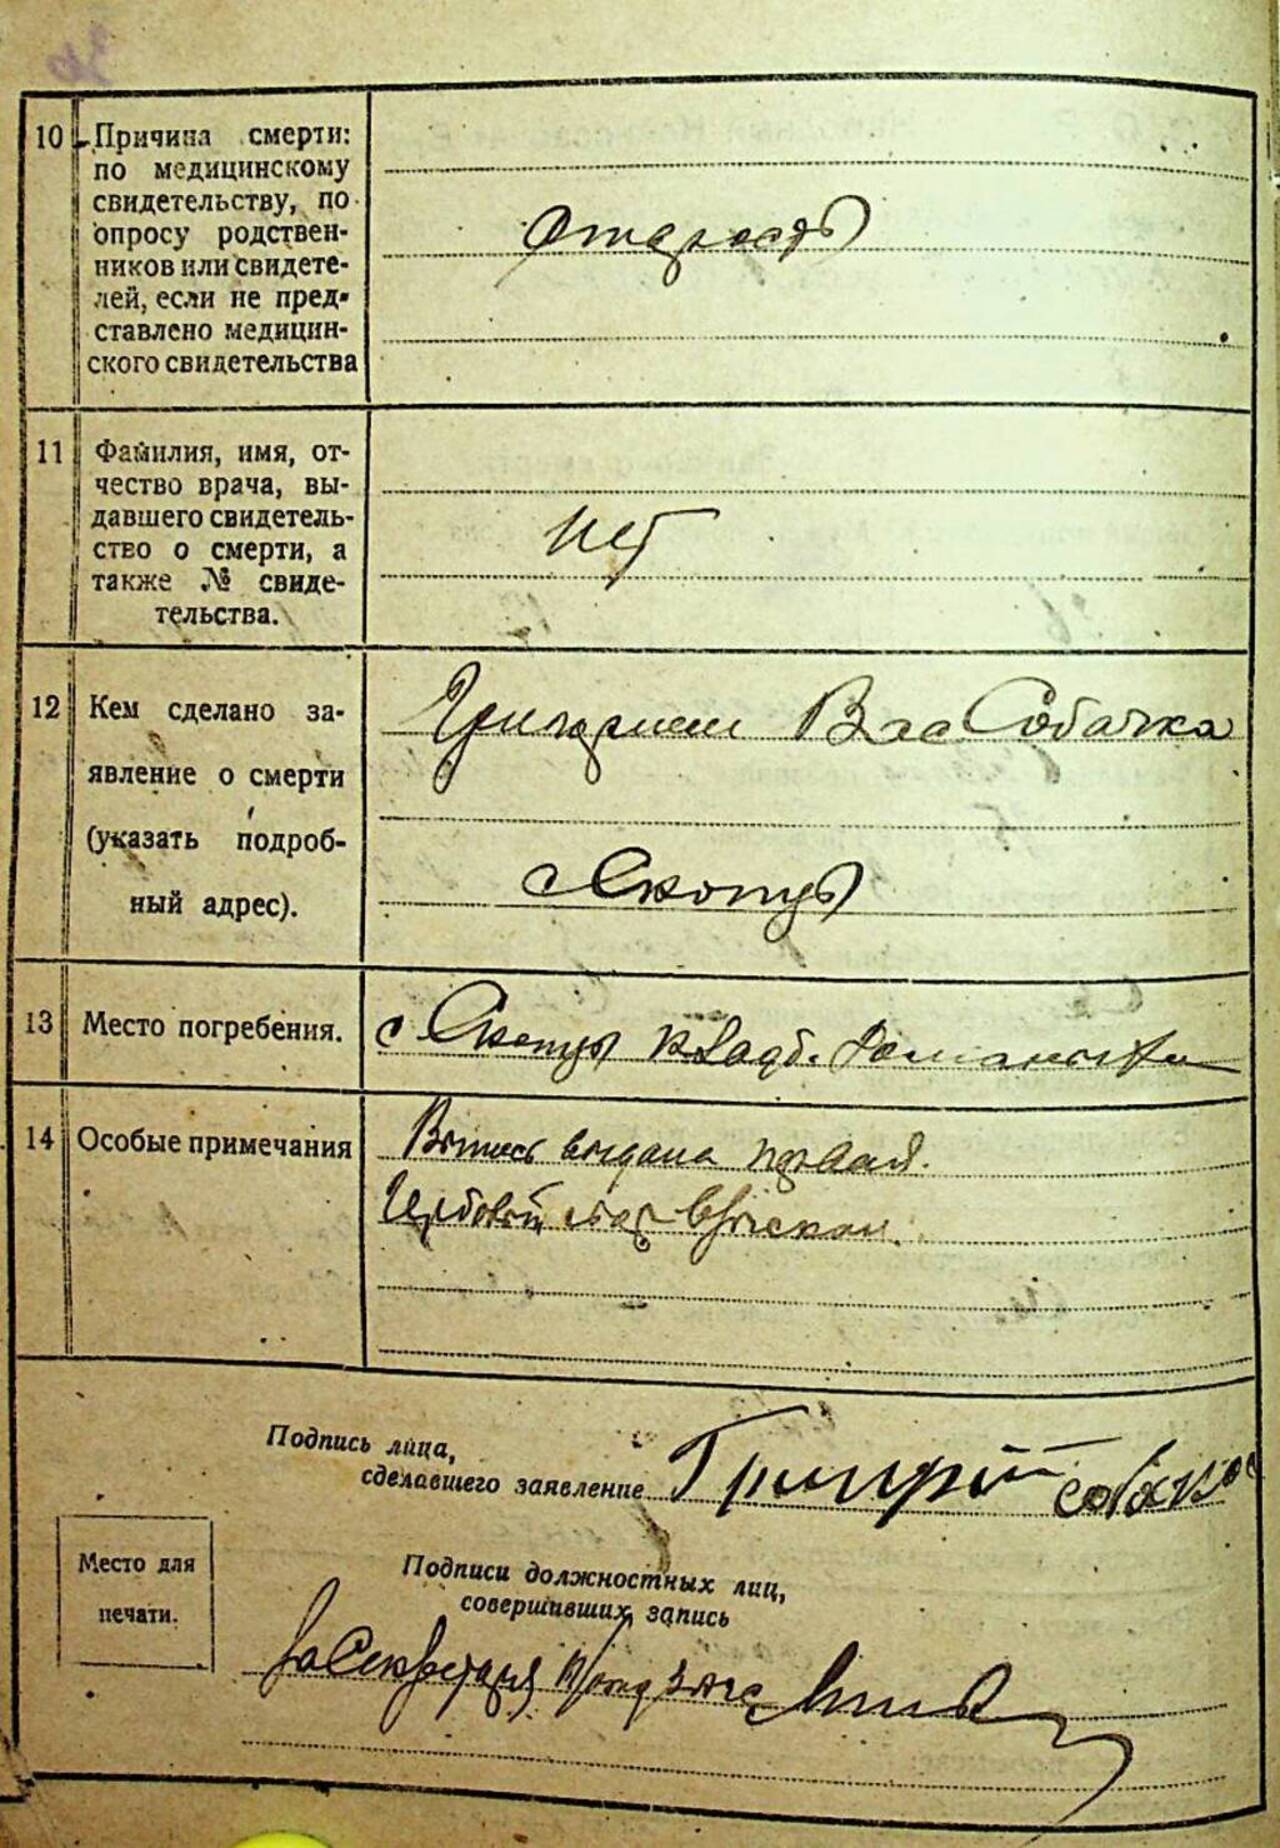 10 Причина смерти:
по медицинскому
свидетельству, по
опросу родствен-
ников или свидете-
лей, если не пред-
ставлено медицин-
ского свидетельства
старость
11 Фамилия, имя, от-
чество врача, вы-
давшего свидетель-
ство о смерти, а
также № свиде-
тельства.
нет
12 Кем сделано за-
явление о смерти
(указать подроб-
ный адрес).
Вас Собачка
с
13 Место погребения.
с кладб.
14 Особые примечания
выдана первая.
Гербовый сбор взыскан.
Подпись лица,
сделавшего заявление
Место для
печати.
Подписи должностных лиц,
совершивших запись
Секретаря